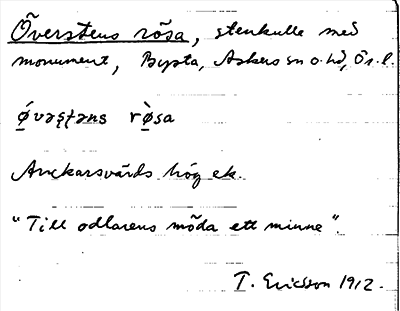 Överstens rösa, stenkulle med
monument, Bysta, Askers sn o. hd, Ör. l.
ǿvəʂʈəns rø̀sa
Anckarsvärds hög ek.
"Till odlarens möda ett minne".
T. Ericsson 1912.